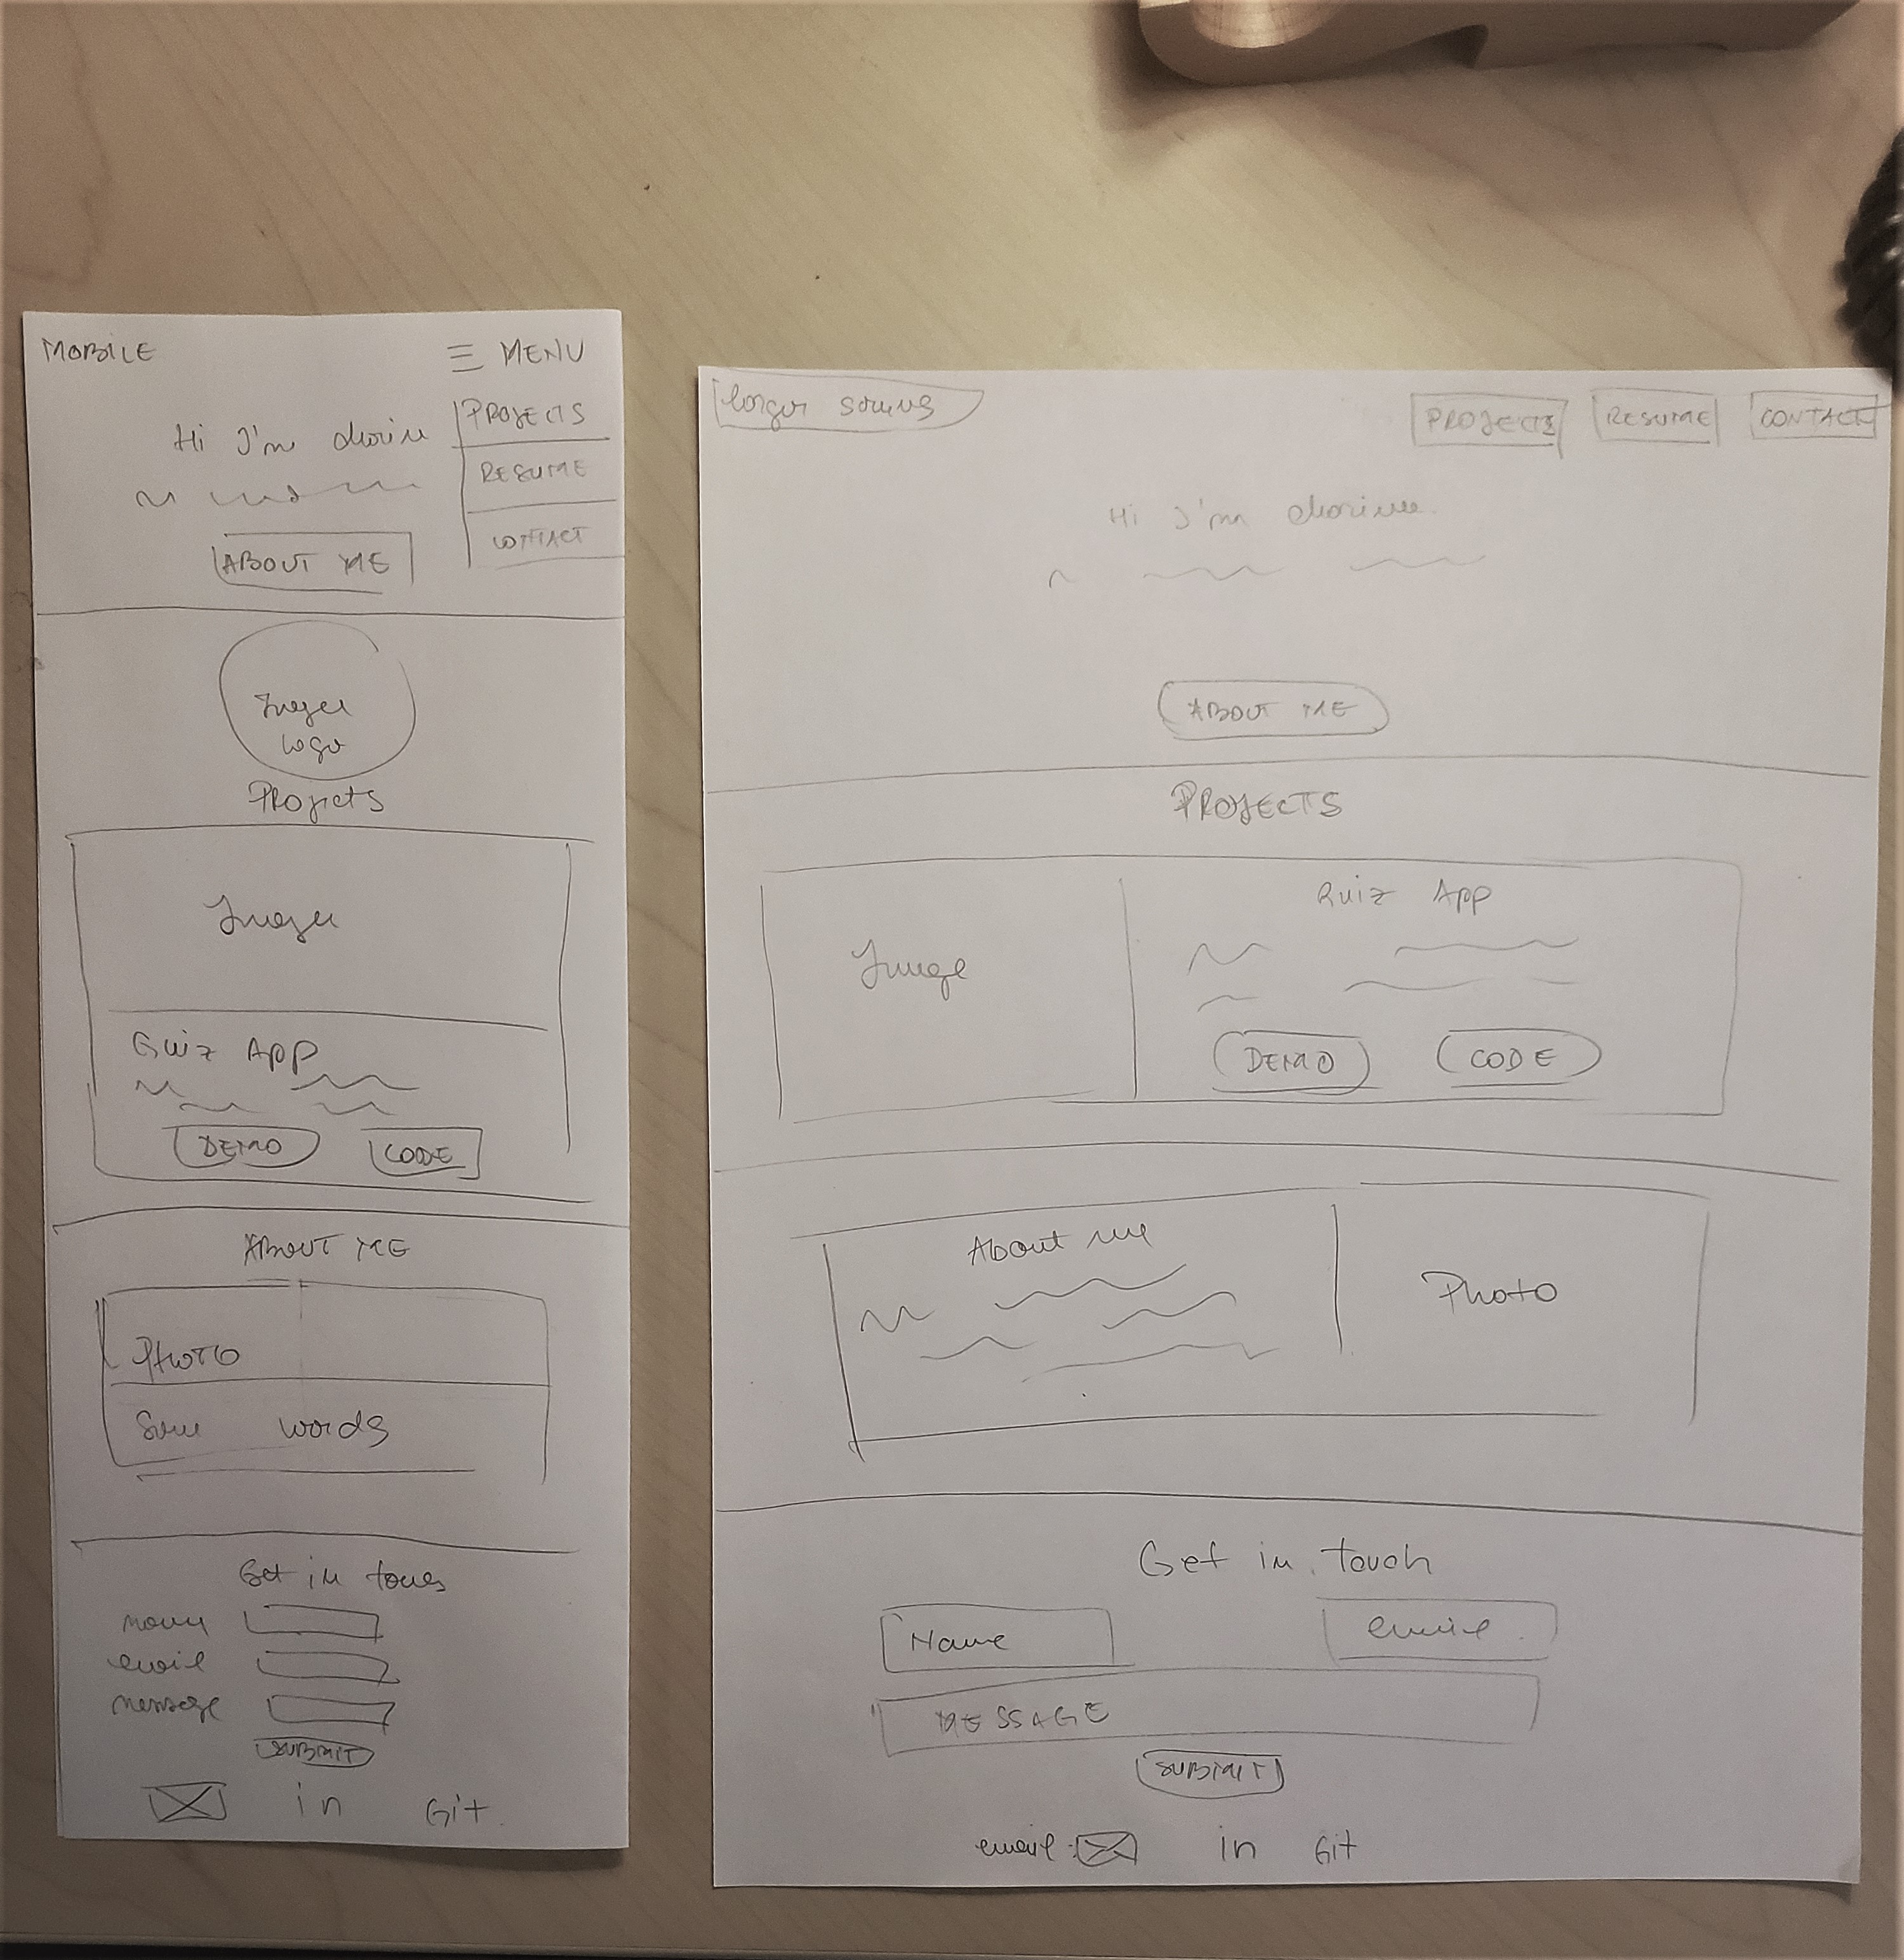 MOBILE
MENU
PROJECTS
RESUME
CONTACT
Hi I'm
ABOUT ME
Image
logo
Projects
Image
Quiz App
DEMO
CODE
ABOUT ME
PHOTO
Some words
Get in touch
name
email
message
SUBMIT
in
Git
PROJECTS
RESUME
CONTACT
Hi I'm
ABOUT ME
PROJECTS
Image
Quiz App
DEMO
CODE
About me
Photo
Get in touch
Name
email
MESSAGE
SUBMIT
email:
in
Git